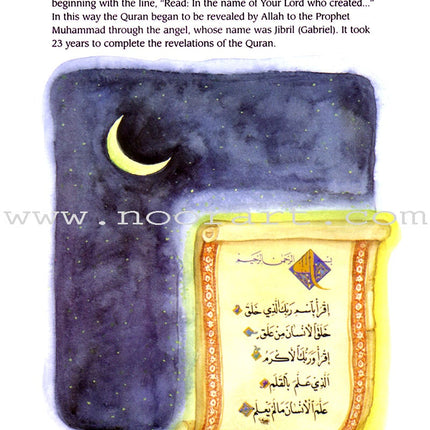 beginning with the line, "Read: In the name of Your Lord who created..."
In this way the Quran began to be revealed by Allah to the Prophet
Muhammad through the angel, whose name was Jibril (Gabriel). It took
23 years to complete the revelations of the Quran.
بسم الله الرحمن الرحيم
اقرأ باسم ربك الذي خلق
خلق الإنسان من علق
اقرأ وربك الأكرم
الذي علم بالقلم
علم الإنسان ما لم يعلم